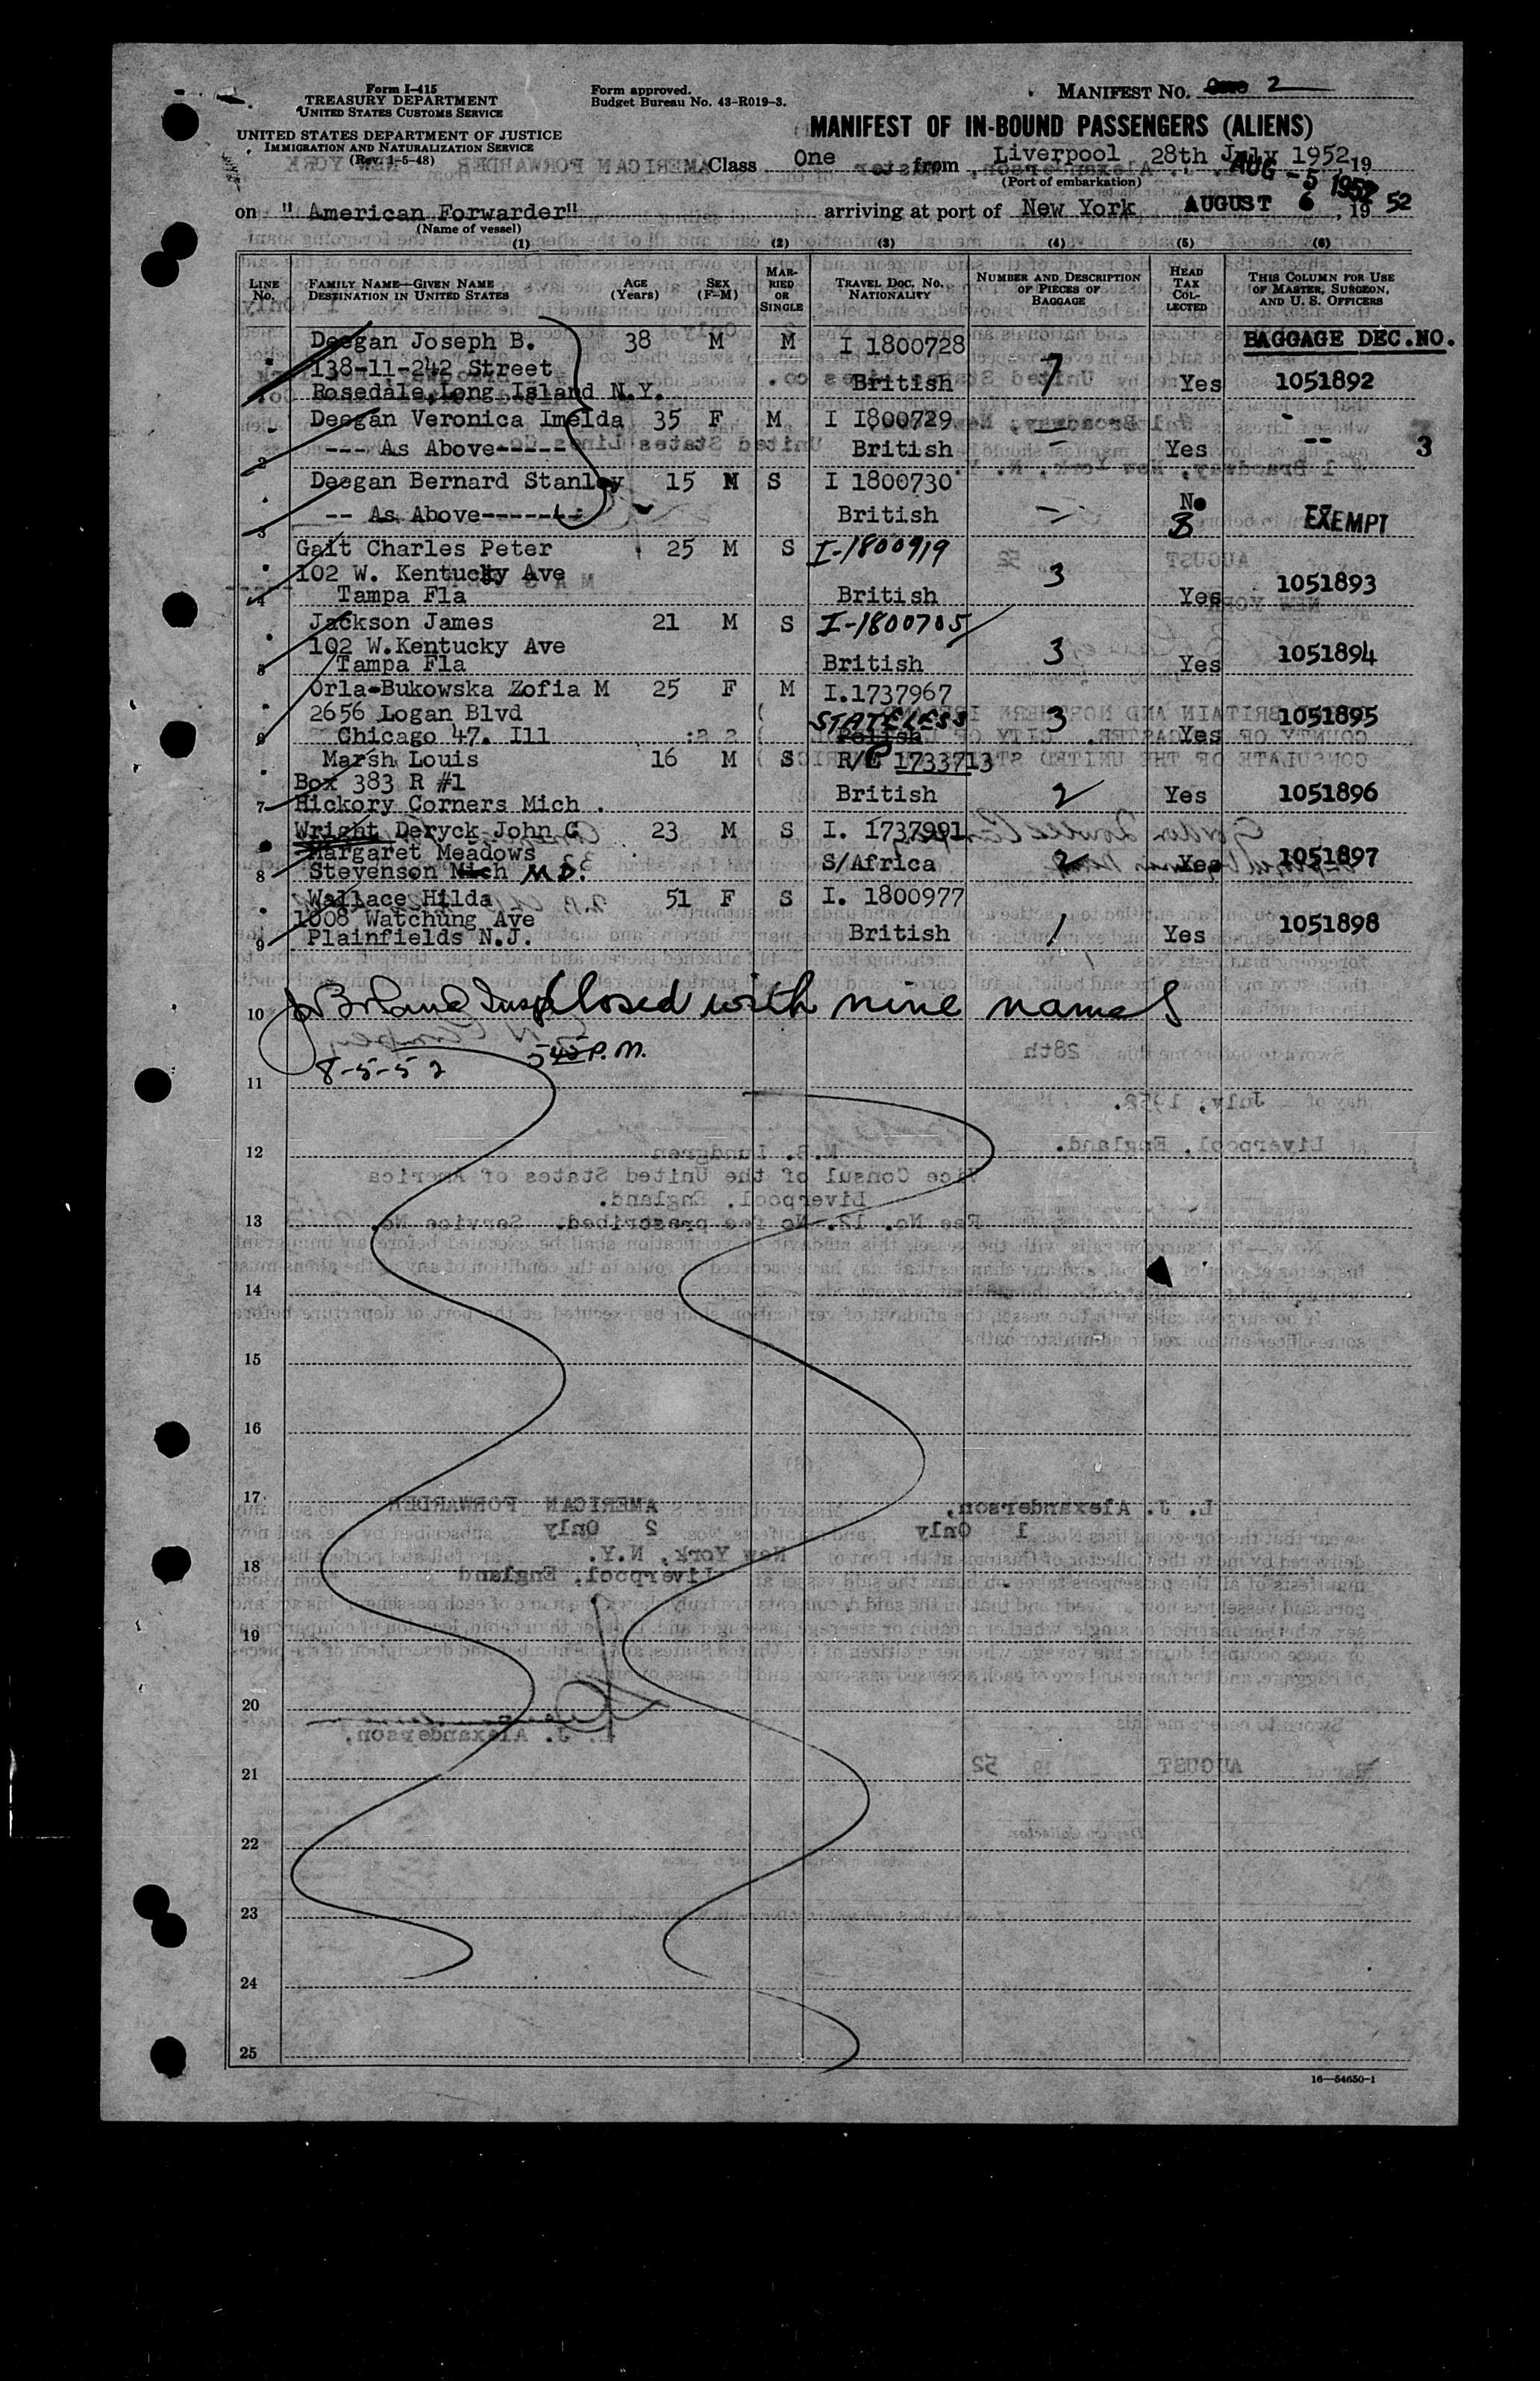 Form I-415
TREASURY DEPARTMENT
UNITED STATES CUSTOMS SERVICE
UNITED STATES DEPARTMENT OF JUSTICE
IMMIGRATION AND NATURALIZATION SERVICE
(Rev. 1-5-48)
Form approved.
Budget Bureau No. 43-R019-3.
MANIFEST NO. One 2
MANIFEST OF IN-BOUND PASSENGERS (ALIENS)
Class One from Liverpool 28th July 1952, 19
(Port of embarkation)
AUG -5 1952
on "American Forwarder" arriving at port of New York AUGUST 6, 19 52
(Name of vessel)
(1) (2) (3) (4) (5) (6)
LINE No.
FAMILY NAME—GIVEN NAME
DESTINATION IN UNITED STATES
AGE (Years)
SEX (F-M)
MARRIED OR SINGLE
TRAVEL DOC. NO. NATIONALITY
NUMBER AND DESCRIPTION OF PIECES OF BAGGAGE
HEAD TAX COLLECTED
THIS COLUMN FOR USE OF MASTER, SURGEON, AND U. S. OFFICERS
BAGGAGE DEC. NO.
Deegan Joseph B. 38 M M I 1800728
138-11-242 Street 7
1 Rosedale, Long Island N.Y. British Yes 1051892
Deegan Veronica Imelda 35 F M I I800729 -
2 --- As Above----- British - Yes -- 3
Deegan Bernard Stanley 15 M S I 1800730 No
3 -- As Above------- British 3 EXEMPT
Gait Charles Peter 25 M S I-1800919
102 W. Kentucky Ave 3
4 Tampa Fla British Yes 1051893
Jackson James 21 M S I-1800705
102 W.Kentucky Ave 3
5 Tampa Fla British Yes 1051894
Orla-Bukowska Zofia M 25 F M I.1737967
2656 Logan Blvd STATELESS 3 1051895
6 Chicago 47. Ill Polish Yes
Marsh Louis 16 M S R/P 1733713
Box 383 R #1
7 Hickory Corners Mich. British 2 Yes 1051896
Wright Deryck John G 23 M S I. 1737991
Margaret Meadows
8 Stevenson Mich M.D. S/Africa 2 Yes 1051897
Wallace Hilda 51 F S I. 1800977
1008 Watchung Ave
9 Plainfields N.J. British 1 Yes 1051898
10 Closed with nine names
8-5-52 5 45 P.M.
11
12
13
14
15
16
17
18
19
20
21
22
23
24
25
16—54650-1